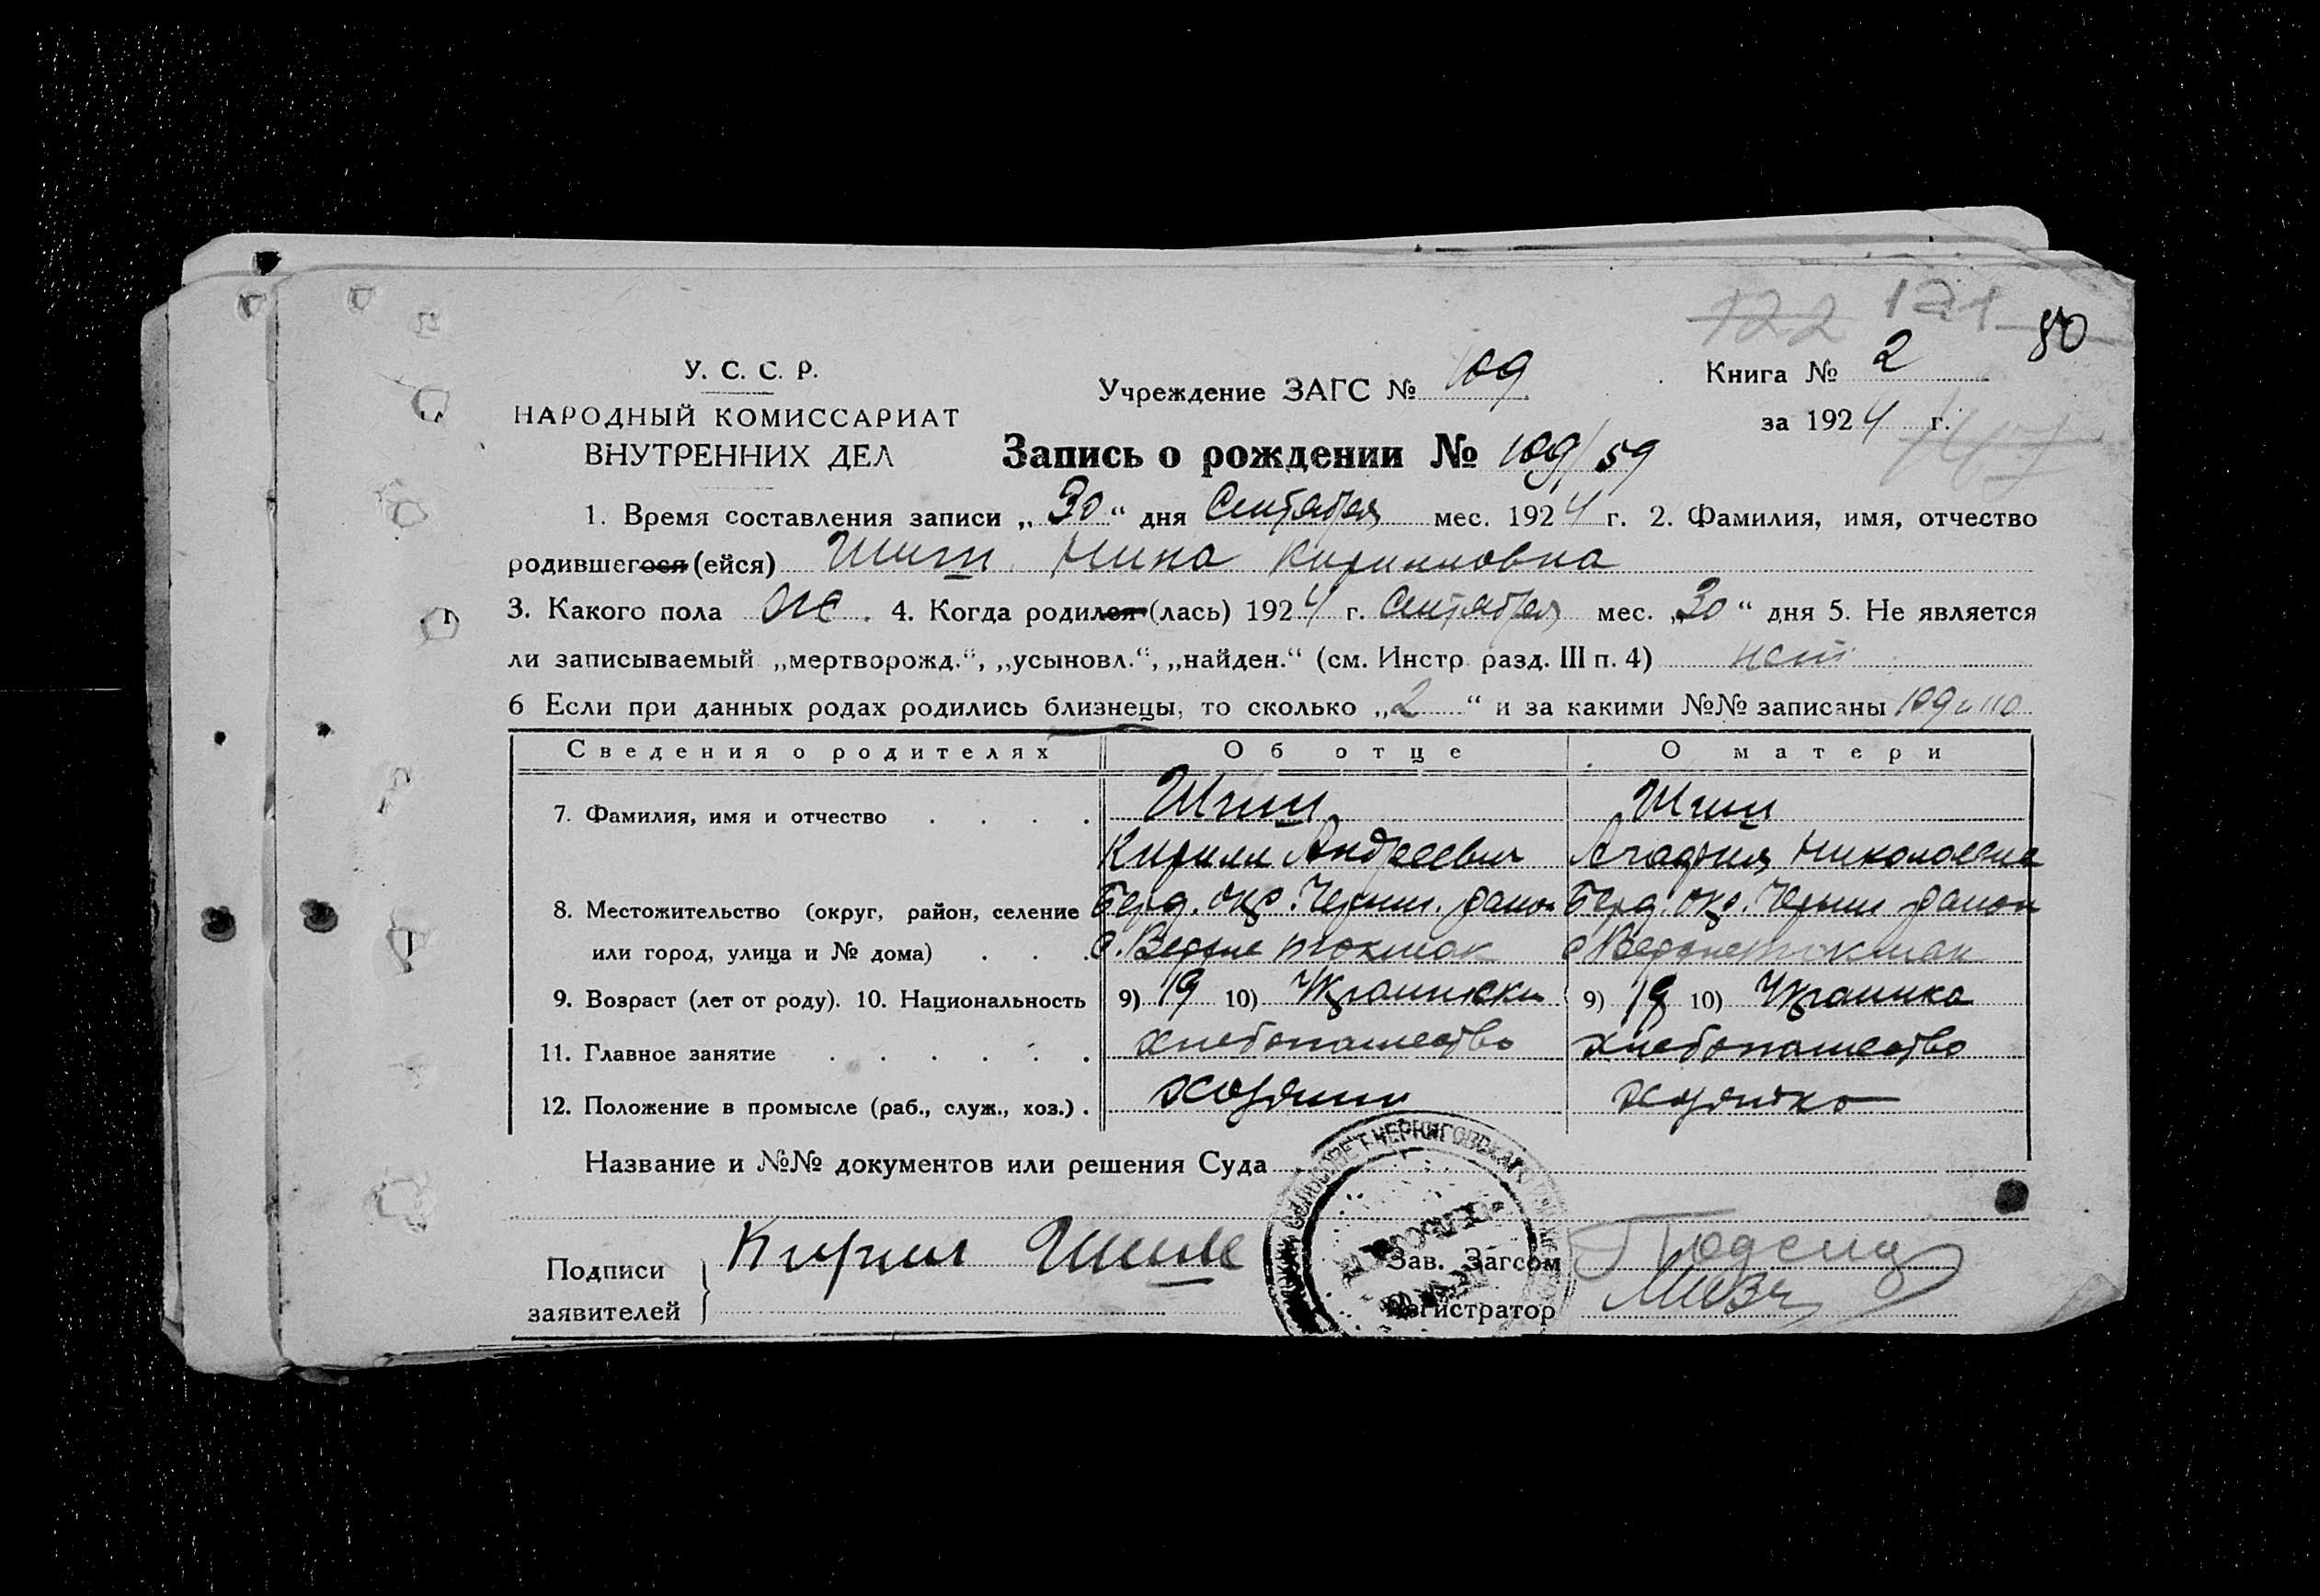 122 121 80
У. С. С. Р.
Учреждение ЗАГС № 109
Книга № 2
НАРОДНЫЙ КОМИССАРИАТ
за 1924 г.
ВНУТРЕННИХ ДЕЛ
Запись о рождении № 109/59
1. Время составления записи „30“ дня Сентября мес. 1924 г. 2. Фамилия, имя, отчество
родившегося (ейся) Шиш Нина Кирилловна
3. Какого пола ж. 4. Когда родился (лась) 1924 г. Сентября мес. „30“ дня 5. Не является
ли записываемый „мертворожд.“, „усыновл.“, „найден.“ (см. Инстр. разд. III п. 4) нет
6 Если при данных родах родились близнецы, то сколько „2“ и за какими №№ записаны 109 и 110
Сведения о родителях Об отце О матери
7. Фамилия, имя и отчество . . . . Шиш Шиш
Кирилл Андреевич Агафия Николаевна
8. Местожительство (округ, район, селение Берд. окр. Черниг. район Берд. окр. Черниг район
или город, улица и № дома) . . . с. Верхне Токмак с Верхнетокмак
9. Возраст (лет от роду). 10. Национальность 9) 19 10) Украинский 9) 19 10) Украинка
11. Главное занятие . . . . . . хлебопашество хлебопашество
12. Положение в промысле (раб., служ., хоз.) . хозяин хозяйка
Название и №№ документов или решения Суда
СЕЛЬСОВЕТ ЧЕРНИГОВСКАГО
Подписи
заявителей
Кирил Шиш
Зав. Загсом
Регистратор